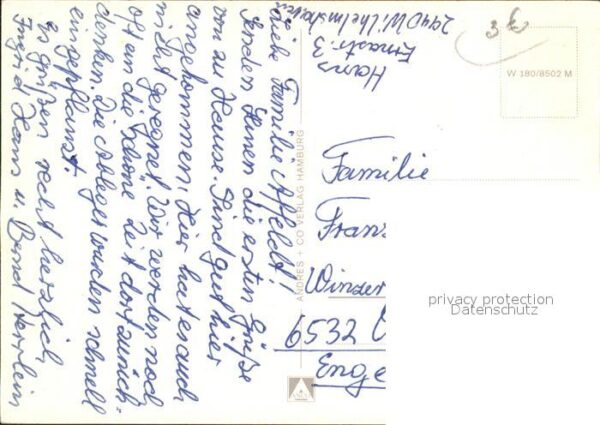 Hans
Ernastr. 3
2940 Wilhelmshaven
Liebe Familie Affeldt!
Senden Ihnen die ersten Grüße
von zu Hause. Sind gut hier
angekommen. Hier hat es auch
in Zeit geregnet. Wir werden noch
oft an die schöne Zeit dort zurück-
denken. Die Ableger wurden schnell
eingepflanzt.
Es grüßen recht herzlich
Ingrid Hans u. Bernd
3 €
W 180/8502 M
ANDRES + CO VERLAG HAMBURG
Familie
Franz
Winzer
6532
Enge
privacy protection
Datenschutz